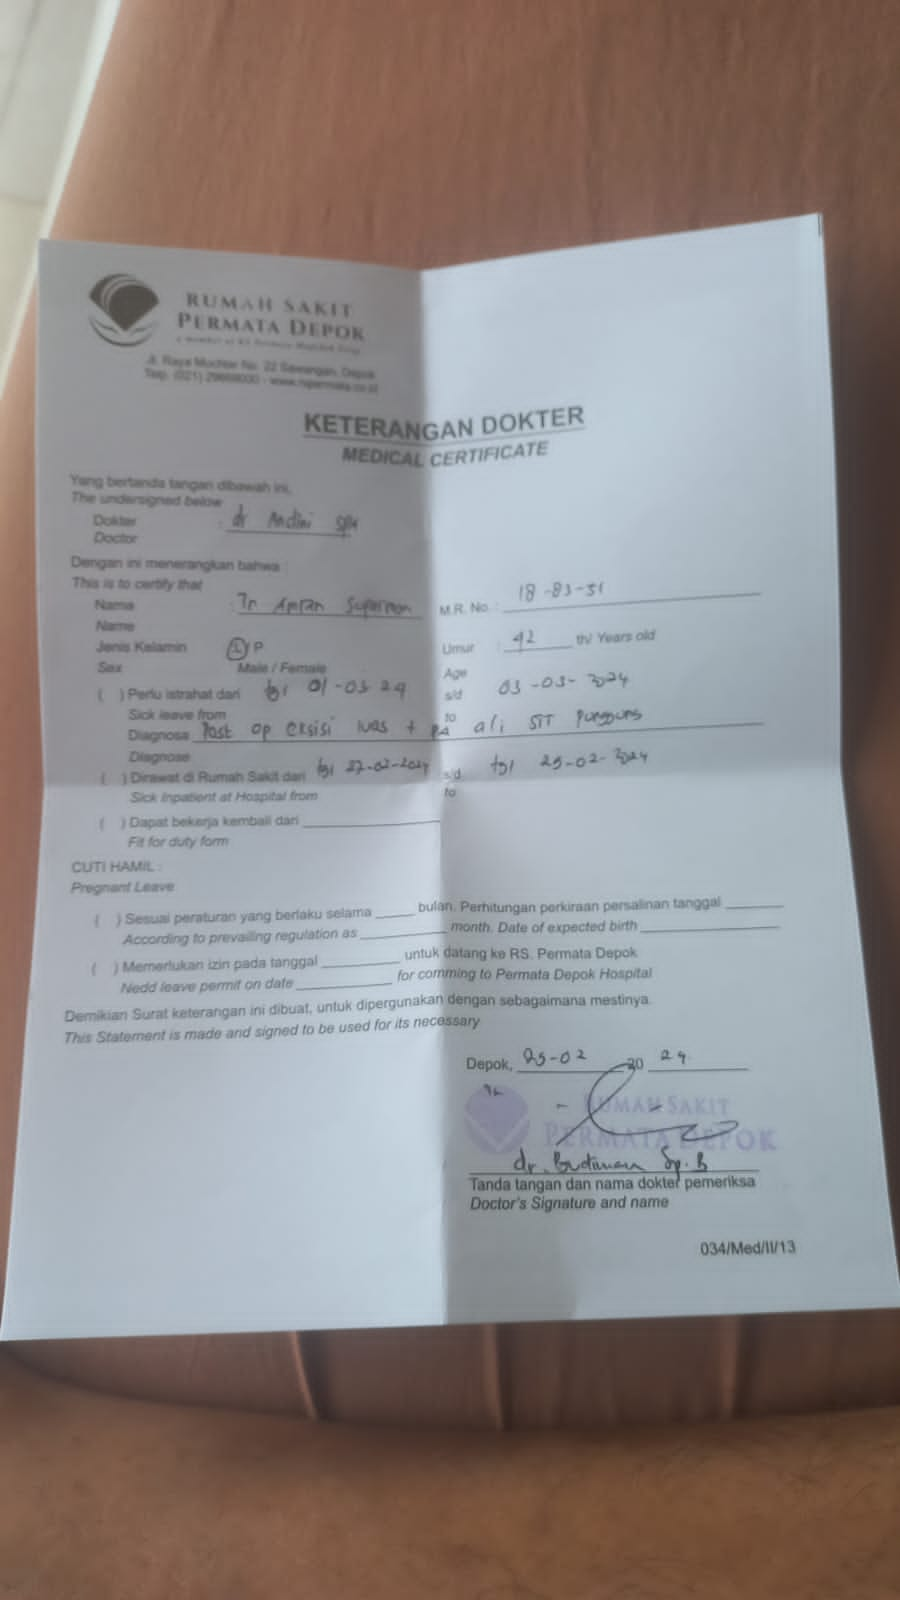 RUMAH SAKIT
PERMATA DEPOK
Jl. Raya Muchtar No. 22 Sawangan, Depok
Telp. (021) 29669000 - www.rspermata.co.id
KETERANGAN DOKTER
MEDICAL CERTIFICATE
Yang bertanda tangan dibawah ini,
The undersigned below
Dokter : dr Andini
Doctor
Dengan ini menerangkan bahwa :
This is to certify that
Nama : Tn Suparman M.R. No. : 18-83-51
Name
Jenis Kelamin L/P Umur : 42 th/ Years old
Sex Male / Female Age
( ) Perlu istrahat dari tgl 01-03-24 s/d 03-03-2024
Sick leave from to
Diagnosa Post op eksisi luas + PA a/i STT Punggung
Diagnose
( ) Dirawat di Rumah Sakit dari tgl 27-02-2024 s/d tgl 29-02-2024
Sick Inpatient at Hospital from to
( ) Dapat bekerja kembali dari
Fit for duty form
CUTI HAMIL :
Pregnant Leave
( ) Sesuai peraturan yang berlaku selama bulan. Perhitungan perkiraan persalinan tanggal
According to prevailing regulation as month. Date of expected birth
( ) Memerlukan izin pada tanggal untuk datang ke RS. Permata Depok
Nedd leave permit on date for comming to Permata Depok Hospital
Demikian Surat keterangan ini dibuat, untuk dipergunakan dengan sebagaimana mestinya.
This Statement is made and signed to be used for its necessary
Depok, 29-02 20 24
RUMAH SAKIT
PERMATA DEPOK
dr. Sp.B
Tanda tangan dan nama dokter pemeriksa
Doctor's Signature and name
034/Med/II/13